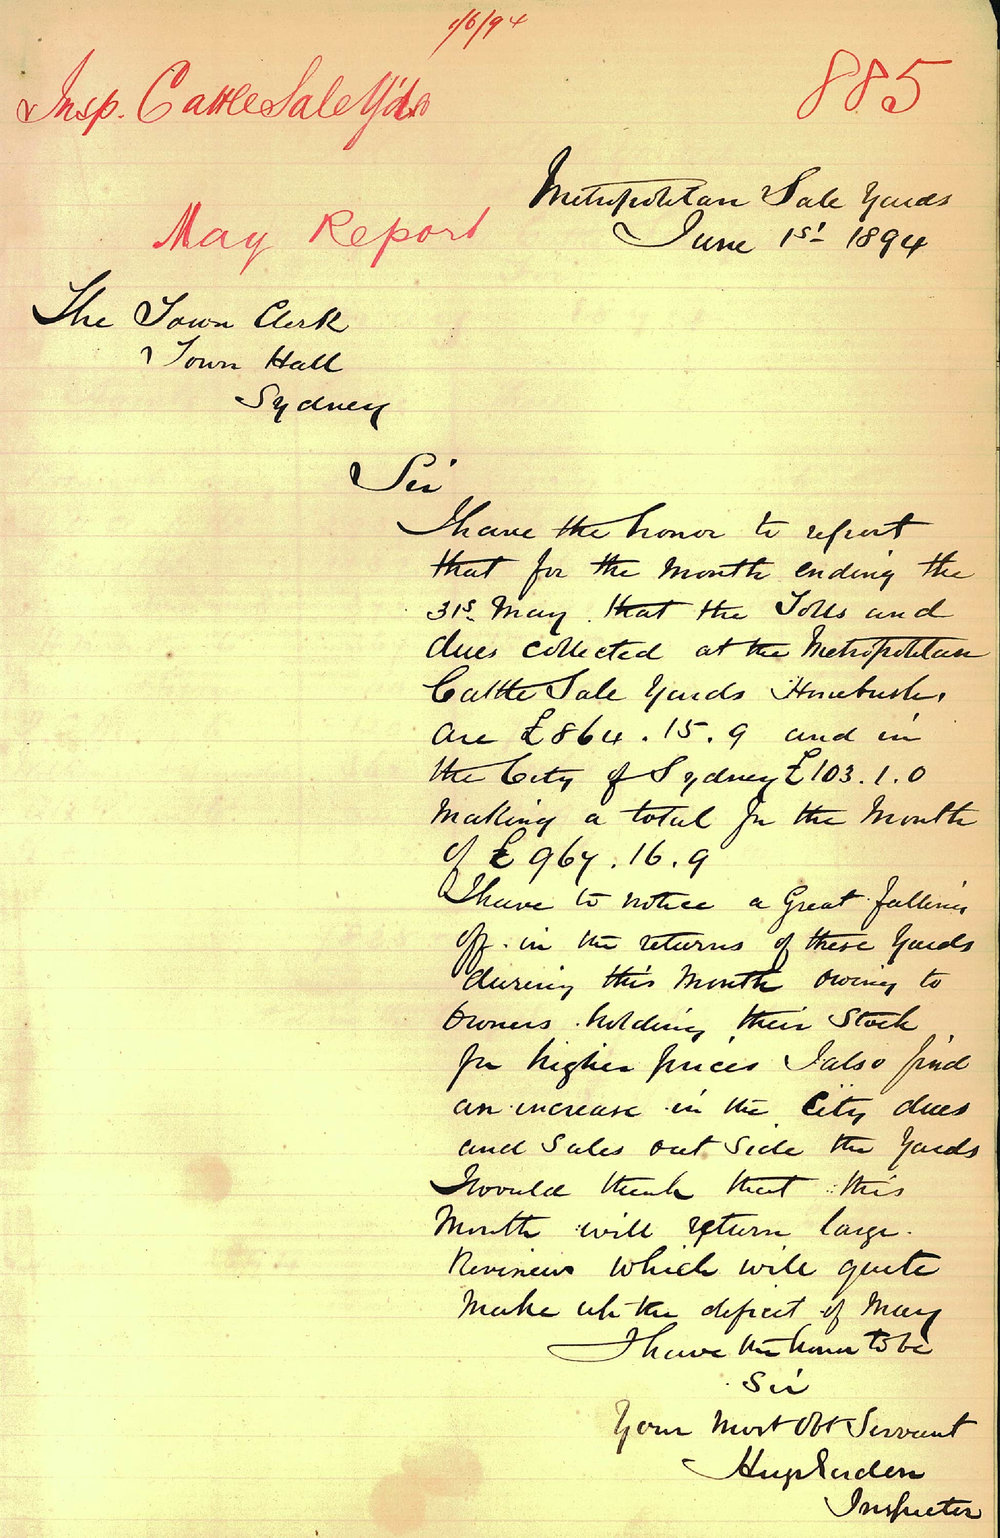 1/6/94
Insp. Cattle Sale Yds
885
Metropolitan Sale Yards
June 1st 1894
May Report
The Town Clerk
Town Hall
Sydney
Sir
I have the honor to report
that for the Month ending the
31st May that the Tolls and
dues collected at the Metropolitan
Cattle Sale Yards Homebush.
are £864.15.9 and in
the City of Sydney £103.1.0
Making a total for the Month
of £967.16.9
I have to notice a Great falling
off in the returns of these Yards
during this Month owing to
Owners holding their Stock
for higher prices I also find
an increase in the City dues
and Sales out Side the Yards
I would think that this
Month will return large
which will quite
Make up the deficit of May
I have the honor to be
Sir
Your Most Obt Servant
Inspector